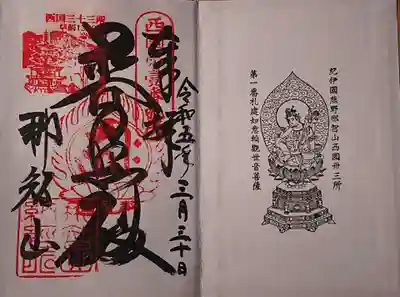 紀伊國熊野那智山西國卅三所
第一番札處如意輪觀世音菩薩
令和五年三月三十日
奉拝
普照殿
那智山
西国三十三所